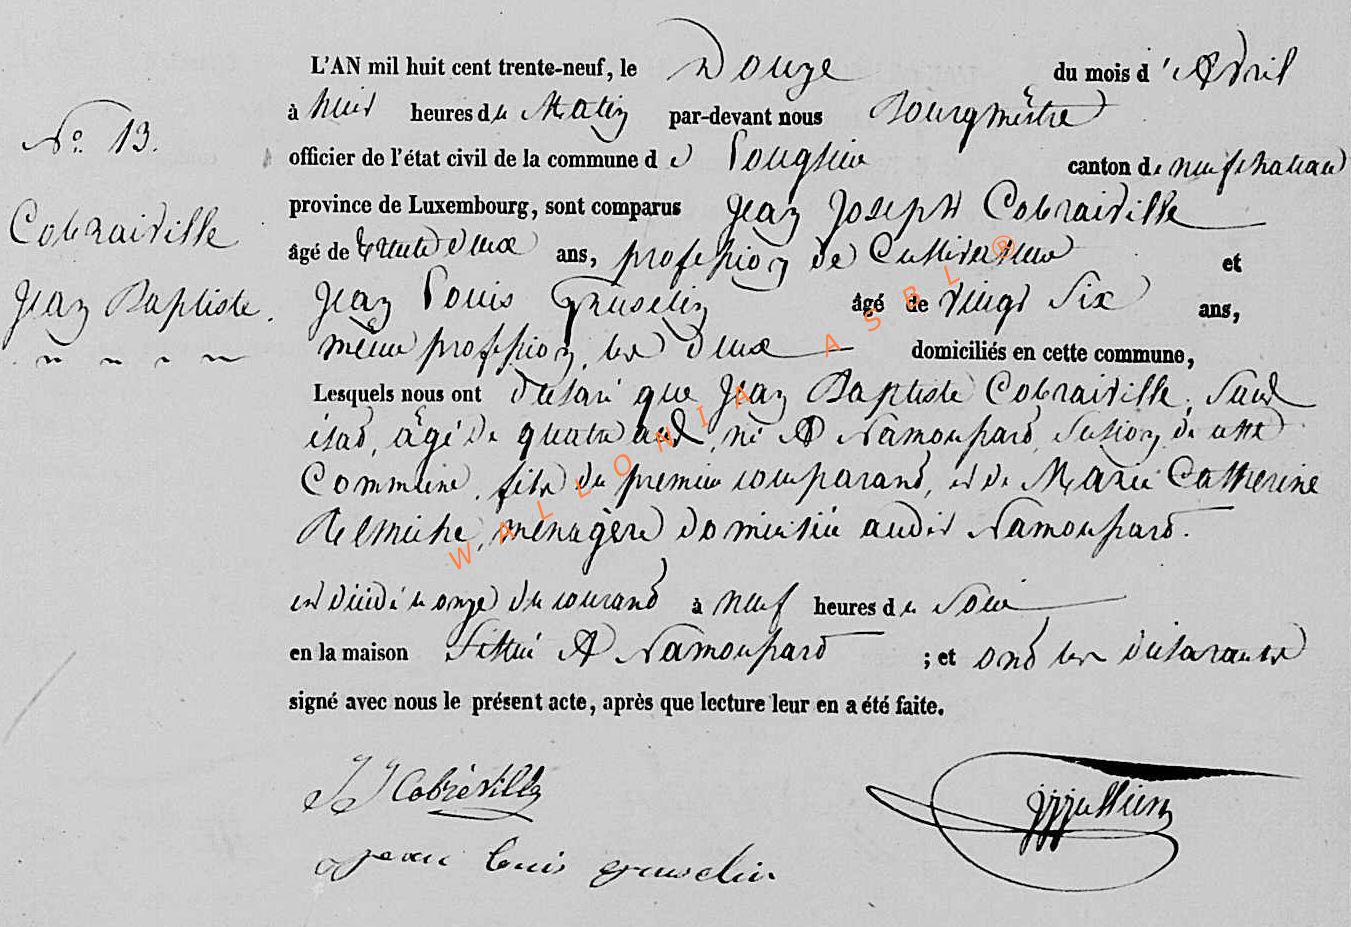 N.º 13.
Cobraiville
Jean Baptiste.
L'AN mil huit cent trente-neuf, le Douze du mois d'Avril
à huit heures du Matin par-devant nous Bourgmêstre
officier de l'état civil de la commune de Longlier canton de neufchateau
province de Luxembourg, sont comparus Jean Joseph Cobraiville
âgé de trente deux ans, profession de Cultivateur et
Jean Louis Gruselin âgé de vingt Six ans,
même profession, les deux domiciliés en cette commune,
Lesquels nous ont déclaré que Jean Baptiste Cobraiville, Sans
état, âgé de quatre ans, né A Namoussard, Section de cette
Commune, fils du premier comparant, et de Marie Catherine
ménagère domiciliée audit Namoussard.
est décédé le onze du courant à neuf heures du Soir
en la maison Sittuée A Namoussard ; et ont les déclarants
signé avec nous le présent acte, après que lecture leur en a été faite.
JJ Cobréville
jean louis gruselin
WALLONIA ASBL ®